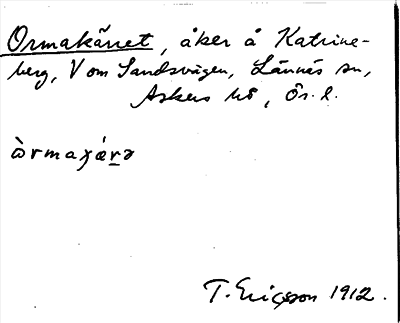 Ormakärret, åker å Katrine-
berg, V om Sandsvägen, Lännäs sn,
Askers hd, Ör. l.
T. Ericsson 1912.